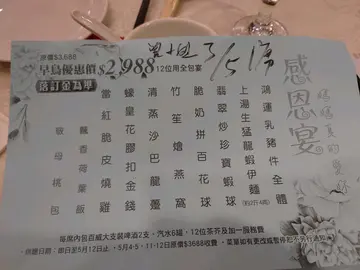 原價$3,688
早鳥優惠價$2,988 12位用全包宴
落訂金為準
3/5 1席
感恩宴
鴻運乳豬件全體
上湯生猛龍蝦伊麵
翡翠炒珍寶蝦球
脆奶拼百花球
竹笙燴燕窩
清蒸沙巴龍躉
蠔皇花膠扣金錢
當紅脆皮燒雞
飄香荷葉飯
敬母桃包
每席內包百威大支裝啤酒7支，汽水6罐，12位茶芥及加一服務費
供應日期：即日至5月12日止，5月4-5，11-12日原價$3688收費。菜單如有更改或暫停恕不另行通知